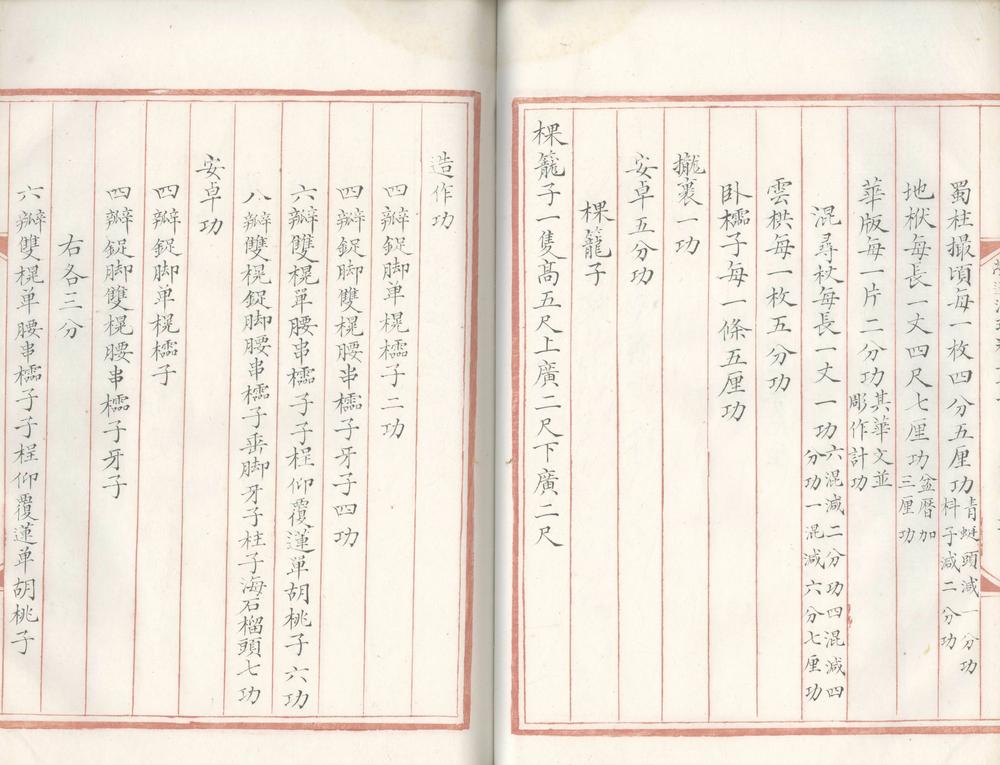 蜀柱撮項每一枚四分五厘功青蜓頭減一分功
枓子減二分功
地栿每長一丈四尺七厘功盆唇加
三厘功
華版每一片二分功其華文並
彫作計功
混尋杖每長一丈一功六混減二分功四混減四
分功一混減六分七厘功
雲栱每一枚五分功
卧櫺子每一條五厘功
攏裹一功
安卓五分功
棵籠子
棵籠子一隻高五尺上廣二尺下廣二尺
造作功
四瓣鋜脚单榥櫺子二功
四瓣鋜脚雙榥腰串櫺子牙子四功
六瓣雙榥单腰串櫺子子桯仰覆蓮单胡桃子六功
八瓣雙榥鋜脚腰串櫺子垂脚牙子柱子海石榴頭七功
安卓功
四瓣鋜脚单榥櫺子
四瓣鋜脚雙榥腰串櫺子牙子
右各三分
六瓣雙榥单腰串櫺子子桯仰覆蓮单胡桃子